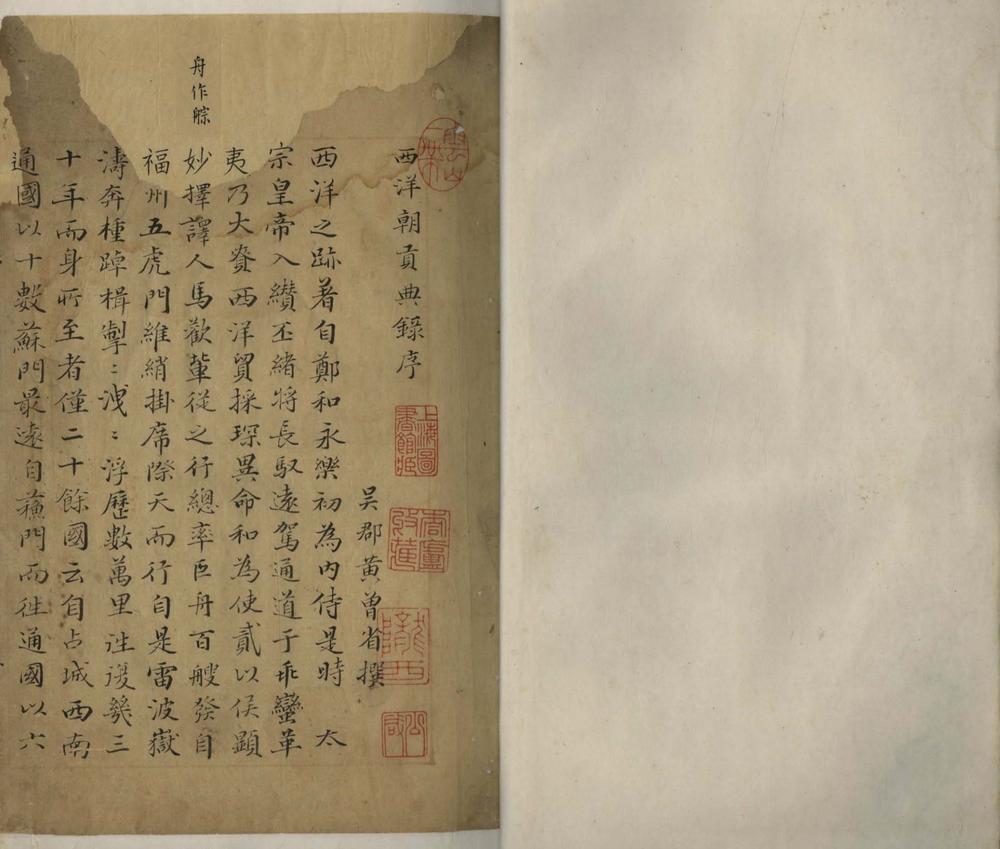 西洋朝貢典錄序
吳郡黃曾省撰
西洋之跡著自鄭和永樂初為內侍是時 太
宗皇帝入纘丕緒將長馭遠駕通道于乖蠻革
夷乃大賚西洋貿採琛異命和為使貳以侯顯
妙擇譯人馬歡輩從之行總率巨舟百艘發自
福州五虎門維綃掛席際天而行自是雷波嶽
濤奔橦踔楫掣:洩:浮歷數萬里往復幾三
十年而身所至者僅二十餘國云自占城西南
通國以十數蘇門最遠自蘇門而往通國以六
舟作䑸
上海圖書館藏